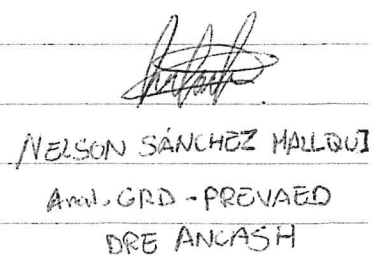 NELSON SÁNCHEZ HALLQUI
GRD - PREVAED
DRE ANCASH